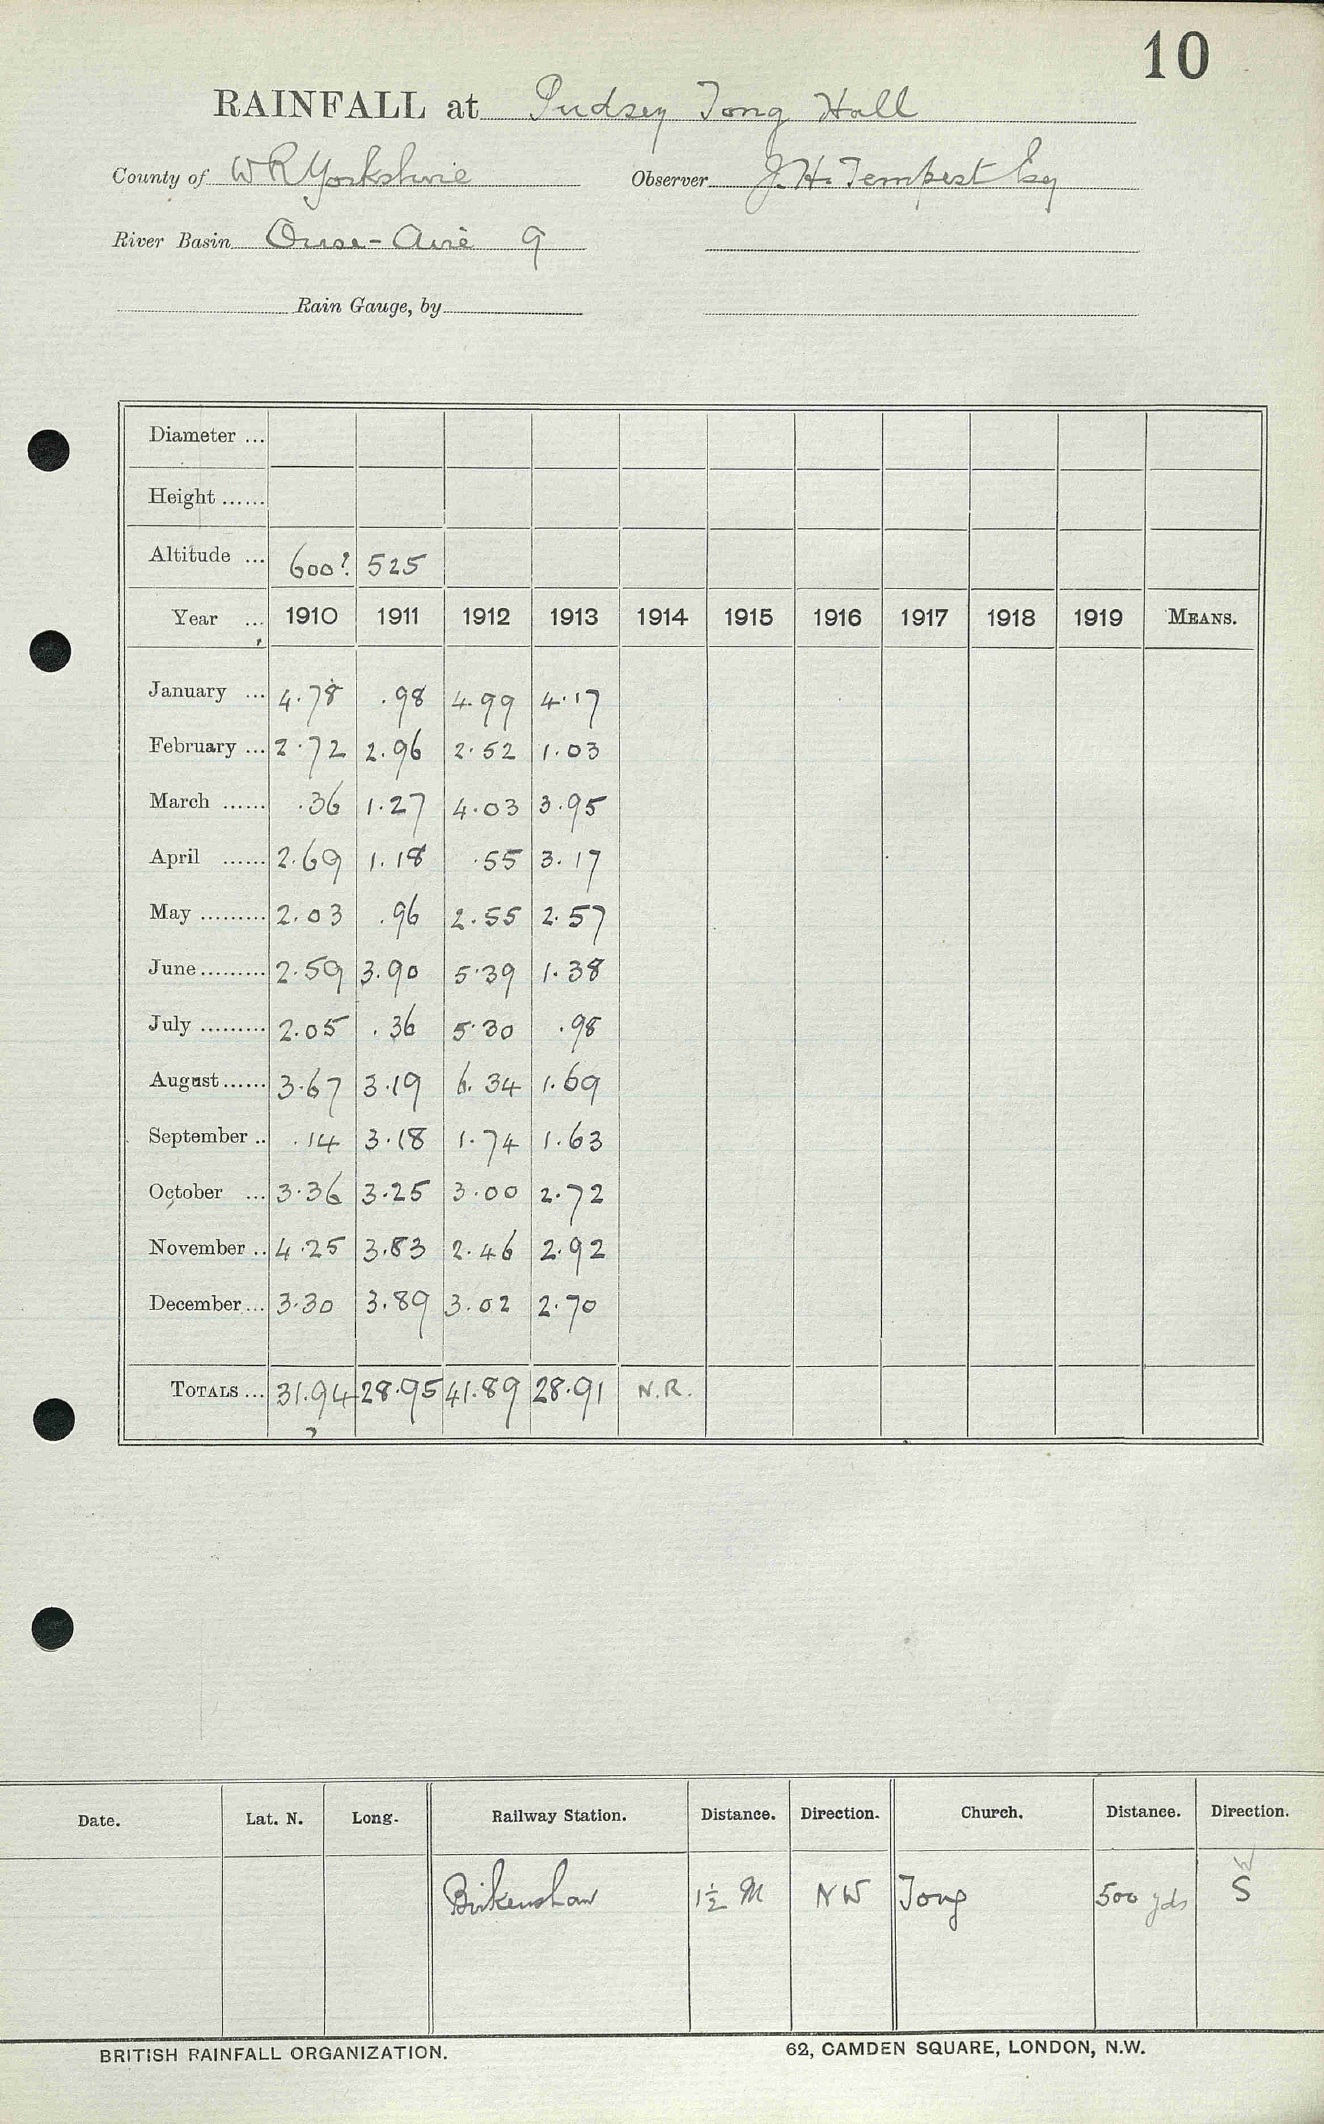 10
RAINFALL at Pudsey Tong Hall
County of W R Yorkshire Observer J. H. Tempest Esq
River Basin Ouse-Aire 9
Rain Gauge, by
Diameter ...
Height ......
Altitude ... 600? 525
Year ... 1910 1911 1912 1913 1914 1915 1916 1917 1918 1919 MEANS.
January ... 4.78 .98 4.99 4.17
February ... 2.72 2.96 2.52 1.03
March ...... .36 1.27 4.03 3.95
April ...... 2.69 1.18 .55 3.17
May ......... 2.03 .96 2.55 2.57
June ......... 2.59 3.90 5.39 1.38
July ......... 2.05 .36 5.30 .98
August ...... 3.67 3.19 6.34 1.69
September .. .14 3.18 1.74 1.63
October ... 3.36 3.25 3.00 2.72
November .. 4.25 3.83 2.46 2.92
December ... 3.30 3.89 3.02 2.70
TOTALS ... 31.94 28.95 41.89 28.91 N.R.
?
Date. Lat. N. Long. Railway Station. Distance. Direction. Church. Distance. Direction.
Birkenshaw 1½ M NW Tong 500 yds S
BRITISH RAINFALL ORGANIZATION. 62, CAMDEN SQUARE, LONDON, N.W.